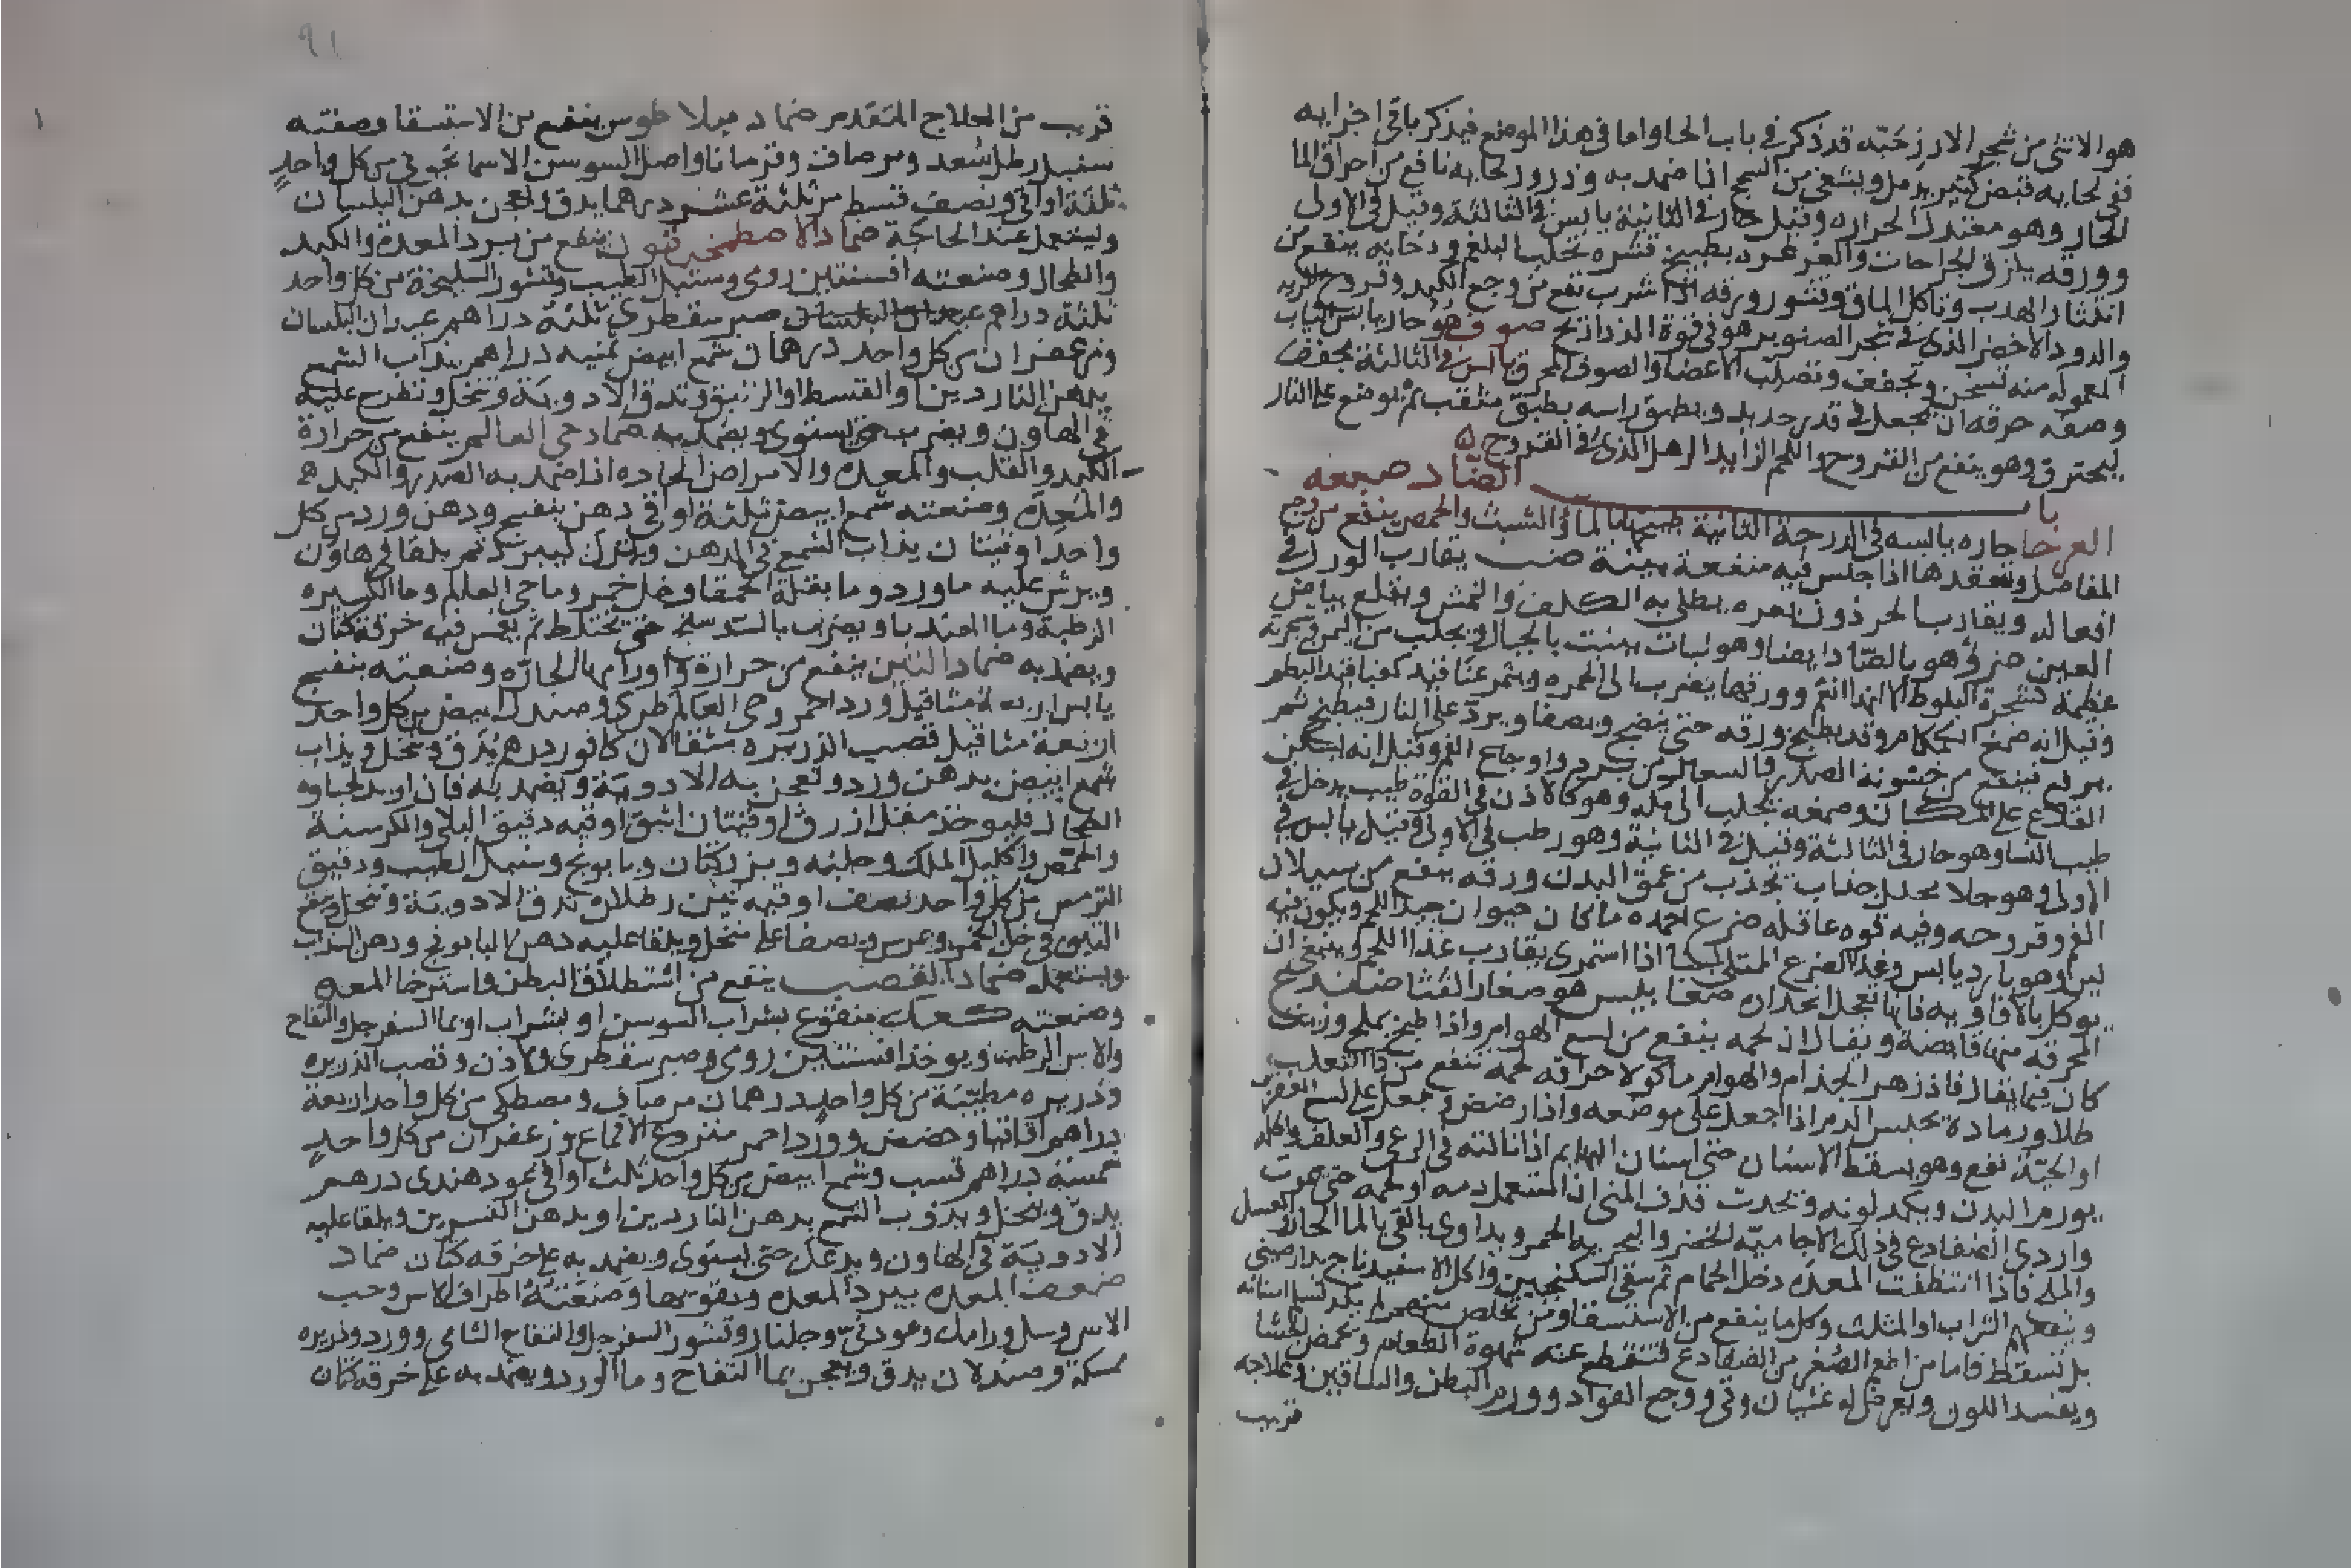 هو الانثى من شجر الارز حبّه قد ذكر في باب الحا واما في هذا الموضع فيذكر باقي اجزايه
ففي لحايه قبض كثير يدمل ويشفي من السحج اذا ضمد به وذرور لحايه نافع من احراق الما
الحار وهو معتدل الحراره وقيل حار في الثانية يابس في الثالثة وقيل في الاولى
وورقه يلزق الجراحات والغرغره بطبيخ قشره تجلب البلغم ودخانه ينفع من
انتثار الهدب وتاكل الماق وقشور ورقه اذا شرب نفع من وجع الكبد وقروح الريه
والدود الاخضر الذي في شجر الصنوبر هو في قوة الذراريح صوف هو حار يابس الثياب
المعموله منه تسخن وتجفف وتصلب الاعضا والصوف المحرق يابس في الثالثة يجفف
وصفه حرقه ان يجعل في قدر جديد ويطبق راسه بطبق مثقب ثم يوضع على النار
ليحترق وهو ينفع من القروح واللحم الزايد الرهل الذي في القروح ه
باب الضاد ضبعه
العرجا حاره يابسه في الدرجة الثانية طبيخها بالما والشبث والحمص ينفع من وجع
المفاصل وتعقدها اذا جلس فيه منفعة بينة ضب يقارب الورل في
افعاله ويقارب الحرذون بعره يطلى به الكلف والنمش ويقلع بياض
العين ضرو هو بالضاد ايضا وهو نبات ينبت بالجبال ويجلب من اليمن شجرته
عظيمه كشجرة البلوط الا انها انعم وورقها يضرب الى الحمره ويثمر عناقيد كعناقيد البطم
وقيل انه صمغ الكمكام وقد يطبخ ورقه حتى ينضج ويصفا ويردّ على النار فيطبخ ثم
يرفع فينفع من خشونة الصدر والسعال من برد واوجاع الفم وقيل انه يسكن
القلاع على المكان وصمغه يجلب الى مكه وهو كالاذن في القوة طيب يدخل في
طيب النسا وهو حار في الثالثة وقيل في الثانية وهو رطب في الاولى وقيل يابس في
الاولى وهو جلا محلل جذاب تجذب من عمق البدن ورقه ينفع من سيلان
الفم وقروحه وفيه قوه عاقله ضرع احمده ما كان من حيوان جيد اللحم ويكون فيه
لبن وهو بارد يابس وغذا الضرع الممتلي لبنا اذا استمرى يقارب غذا اللحم وينبغي ان
يوكل بالافاويه فانها تعجل انحداره ضغابيس هو صغار القثا ضفدع
المحرقه منها قابضة ويقال ان لحمه ينفع من لسع الهوام واذا طبخ بملح وزيت
كان فيما يقال فاذزهر الجذام والهوام ماكولا حراقه لحمه تنفع من دا الثعلب
طلا ورمادة تحبس الدم اذا جعل على موضعه واذا رضض وجعل على لسع العقرب
او الحيّة نفع وهو يسقط الاسنان حتى اسنان البهايم اذا نالته في الرعي والعلف واكله
يورم البدن ويكمد لونه وتحدث قذف المني اذا استعمل دمه او لحمه حتى يموت
واردى الضفادع في ذلك الاجاميّه الخضر والبحريه الحمر ويداوى بالقي بالما الحار والعسل
والملح فاذا انتظفت المعده دخل الحمام ثم سقى السكنجبين واكل الاسفيدناج بدارصيني
وينفعه الشراب او المثلث وكل ما ينفع من الاستسقا ومن تخلص منهم لم يكد تسلم اسنانه
بل تسقط فاما من اطعم الصغر من الضفادع فتنقطع عنه شهوة الطعام وتحمض الجشا
ويفسد اللون ويعرض له غثيان وقي ووجع الفواد وورم البطن والساقين وعلاجه
قريب
٩١
قريب من العلاج المتقدم ضماد ميلاطوس ينفع من الاستسقا وصفته
سنبل رطل سعد ومر صاف وقردمانا واصل السوسن الاسمانجوني من كل واحدٍ
ثلثة اواقي ونصف قسط مر ثلثة عشر درهما يدق ويعجن بدهن البلسان
ويستعمل عند الحاجة ضماد الاصطمخيقون ينفع من برد المعدة والكبد
والطحال وصنعته افسنتين رومي وسنبل الطيب وقشور السليخة من كل واحد
ثلثة دراهم صبر سقطري ثلثة دراهم عيدان البلسان
وزعفران من كل واحد درهمان شمع ابيض ثمنيه دراهم يذاب الشمع
بدهن الناردين او القسط او الزنبق وتدق الادوية وتنخل وتطرح عليه
في الهاون ويضرب حتى يستوي ويضمد به ضماد حي العالم ينفع من حرارة
الكبد والقلب والمعده والامراض الحاده اذا ضمد به الصدر والكبد
والمعده وصنعته شمع ابيض ثلثة اواقي دهن بنفسج ودهن ورد من كل
واحد اوقيتان يذاب الشمع في الدهن ويترك ليبرد ثم يلقا في هاون
ويرش عليه ماورد وما بقلة الحمقا وخل خمر وما حي العالم وما الكزبره
الرطبة وما الهندبا ويضرب بالدستج حتى يختلط ثم يغمس فيه خرقة كتان
ويضمد به ضماد اللبن ينفع من حرارة واورام الحارّه وصنعته بنفسج
يابس اربعة مثاقيل ورد احمر وحي العالم طري وصندل ابيض من كل واحد
اربعة مثاقيل قصب الذريره مثقالان كافور درهم يدق وينخل ويذاب
شمع ابيض بدهن ورد وتعجن به الادوية ويضمد به فان اريد لجساوه
الطحال فليوخذ مقل ازرق اوقيتان اشق اوقيه دقيق الباقلي والكرسنة
والحمص واكليل الملك وحلبه وبزر كتان وبابونج وسنبل الطيب ودقيق
الترمس من كل واحد نصف اوقيه تين رطلان تدق الادوية وتنخل وينقع
التين في خل خمر ويمرس ويصفا على منخل ويلقا عليه دهن البابونج ودهن السذاب
ويستعمل ضماد القصب ينفع من استطلاق البطن واسترخا المعده
وصنعته كعك منقوع بشراب السوسن او بشراب او بما السفرجل والتفاح
والاس الرطب ويوخذ افسنتين رومي وصبر سقطري ولاذن وقصب الذريره
وذريره مطيّبة من كل واحدٍ درهمان مر صافي ومصطكي من كل واحد اربعة
دراهم اقاقيا وحضض وورد احمر منزوع الاقماع وزعفران من كل واحدٍ
خمسة دراهم نسب وشمع ابيض من كل واحد ثلث اواقي عود هندي درهم
يدق وينخل ويذوب الشمع بدهن الناردين او بدهن النسرين ويلقا عليه
الادوية في الهاون ويدعك حتى يستوي ويضمد به على خرقه كتان ضماد
ضعف المعده ببرد المعده ويقويها وصنعتة اطراف الاس وحب
الاس وسك ورامك وعود نيّ وجلنار وقشور السفرجل والتفاح الشامي وورد وذريره
ممسكة وصندلان يدق ويعجن بما التفاح وما الورد ويضمد به على خرقه كتان